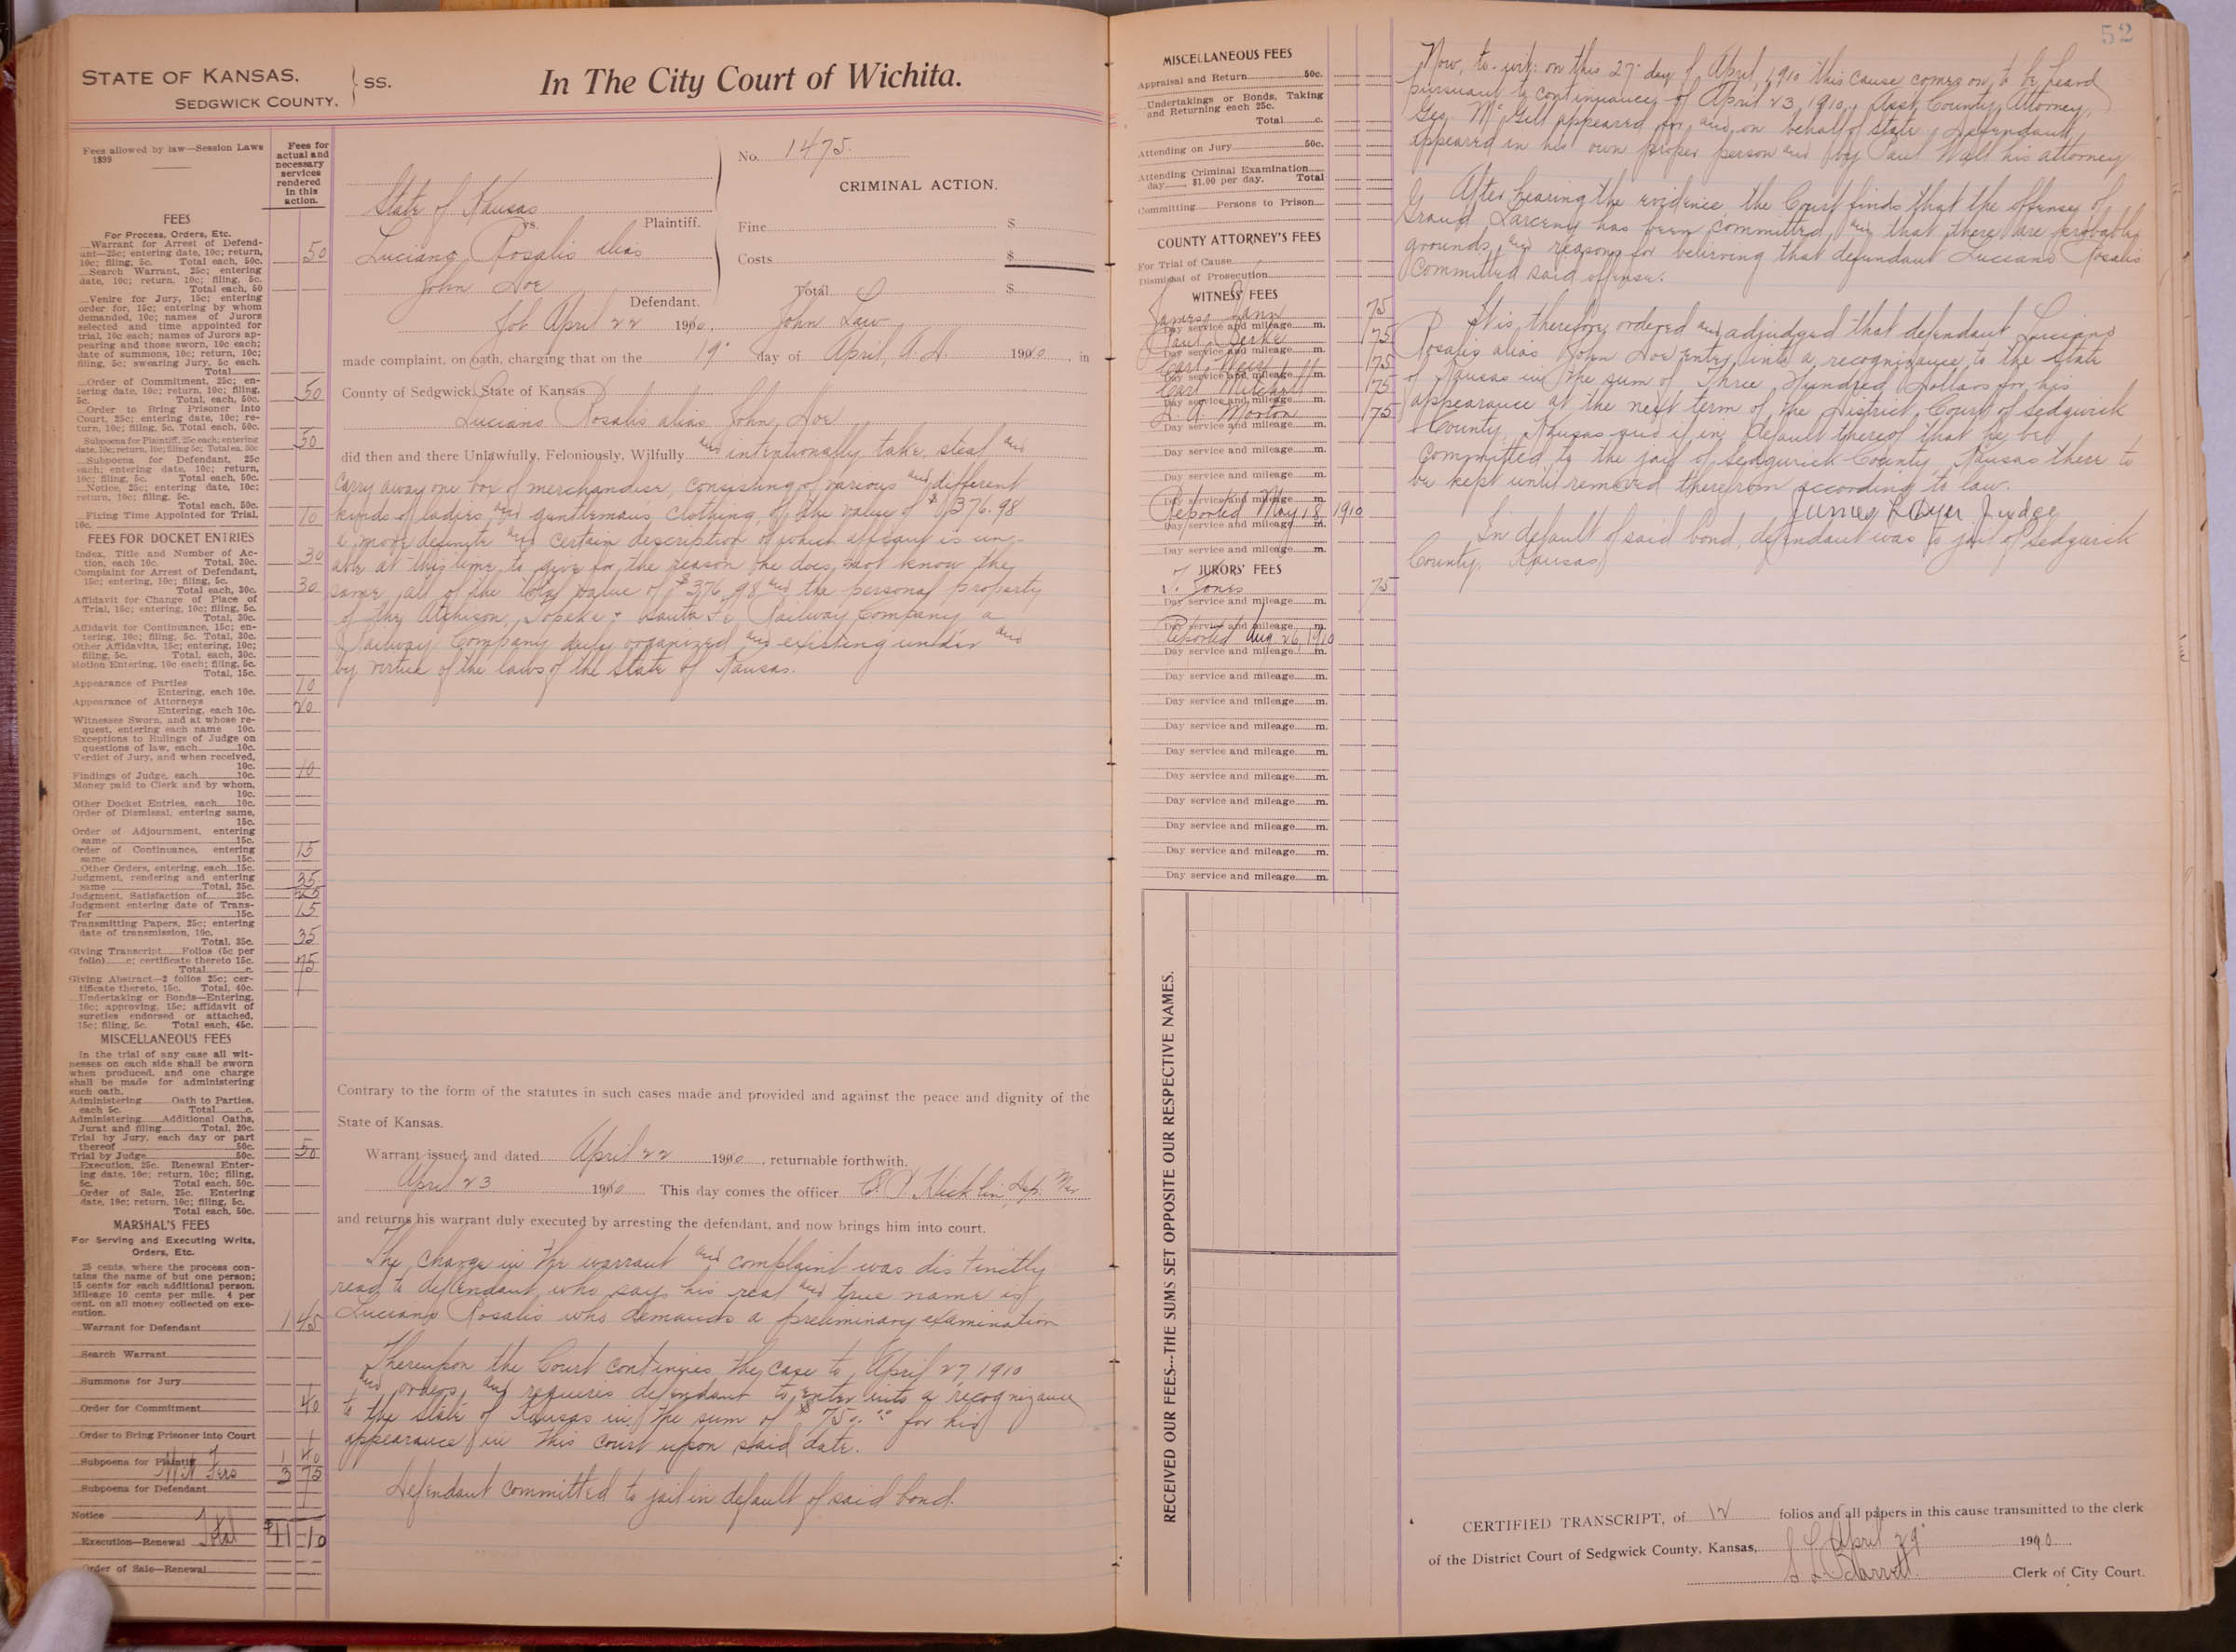 STATE OF KANSAS,
SEDGWICK COUNTY.
} SS.
In The City Court of Wichita.
Fees allowed by law—Session Laws
1899
Fees for
actual and
necessary
services
rendered
in this
action.
FEES
For Process, Orders, Etc.
Warrant for Arrest of Defend-
ant—25c; entering date, 10c; return,
10c; filing, 5c. Total each, 50c. 50
Search Warrant, 25c; entering
date, 10c; return, 10c; filing, 5c.
Total each, 50
Venire for Jury, 15c; entering
order for, 15c; entering by whom
demanded, 10c; names of Jurors
selected and time appointed for
trial, 10c each; names of Jurors ap-
pearing and those sworn, 10c each;
date of summons, 10c; return, 10c;
filing, 5c; swearing Jury, 5c each.
Total
Order of Commitment, 25c; en-
tering date, 10c; return, 10c; filing,
5c. Total, each, 50c. 50
Order to Bring Prisoner into
Court, 25c; entering date, 10c; re-
turn, 10c; filing, 5c. Total each, 50c.
Subpoena for Plaintiff, 25c each; entering
date, 10c; return, 10c; filing 5c; Total ea. 50c 50
Subpoena for Defendant, 25c
each; entering date, 10c; return,
10c; filing, 5c. Total each, 50c.
Notice, 25c; entering date, 10c;
return, 10c; filing, 5c.
Total each, 50c.
Fixing Time Appointed for Trial,
10c. 10
FEES FOR DOCKET ENTRIES
Index, Title and Number of Ac-
tion, each 10c. Total, 30c. 30
Complaint for Arrest of Defendant,
15c; entering, 10c; filing, 5c.
Total each, 30c. 30
Affidavit for Change of Place of
Trial, 15c; entering, 10c; filing, 5c.
Total, 30c.
Affidavit for Continuance, 15c; en-
tering, 10c; filing, 5c. Total, 30c.
Other Affidavits, 15c; entering, 10c;
filing, 5c. Total, each, 30c.
Motion Entering, 10c each; filing, 5c.
Total, 15c.
Appearance of Parties
Entering, each 10c. 10
Appearance of Attorneys
Entering, each 10c. 20
Witnesses Sworn, and at whose re-
quest, entering each name 10c.
Exceptions to Rulings of Judge on
questions of law, each 10c.
Verdict of Jury, and when received,
10c.
Findings of Judge, each 10c. 10
Money paid to Clerk and by whom,
10c.
Other Docket Entries, each 10c.
Order of Dismissal, entering same,
15c.
Order of Adjournment, entering
same 15c.
Order of Continuance, entering
same 15c. 15
Other Orders, entering, each 15c.
Judgment, rendering and entering
same Total, 35c. 35
Judgment, Satisfaction of 25c. 25
Judgment entering date of Trans-
fer 15c. 15
Transmitting Papers, 25c; entering
date of transmission, 10c.
Total, 35c. 35
Giving Transcript Folios (5c per
folio) c; certificate thereto 15c.
Total c. 75
Giving Abstract—2 folios 25c; cer-
tificate thereto, 15c. Total, 40c.
Undertaking or Bonds—Entering,
10c; approving, 15c; affidavit of
sureties endorsed or attached,
15c; filing, 5c. Total each, 45c.
MISCELLANEOUS FEES
In the trial of any case all wit-
nesses on each side shall be sworn
when produced, and one charge
shall be made for administering
such oath.
Administering Oath to Parties,
each 5c. Total c.
Administering Additional Oaths,
Jurat and filing Total, 20c.
Trial by Jury, each day or part
thereof 50c.
Trial by Judge 50c. 50
Execution, 25c. Renewal Enter-
ing date, 10c; return, 10c; filing,
5c. Total each, 50c.
Order of Sale, 25c. Entering
date, 10c; return, 10c; filing, 5c.
Total each, 50c.
MARSHAL'S FEES
For Serving and Executing Writs,
Orders, Etc.
25 cents, where the process con-
tains the name of but one person;
15 cents for each additional person.
Mileage 10 cents per mile. 4 per
cent. on all money collected on exe-
cution.
Warrant for Defendant 1 45
Search Warrant
Summons for Jury
Order for Commitment 40
Order to Bring Prisoner into Court
Subpoena for Plaintiff 1 40
Wit Fees 3 75
Subpoena for Defendant
Notice
Execution—Renewal Total $11 10
Order of Sale—Renewal
No. 1475.
CRIMINAL ACTION.
State of Kansas
vs. Plaintiff.
Luciano Rosalis alias
John Doe
Defendant.
Fine $
Costs $
Total $
April 22 1910, John Law
made complaint, on oath, charging that on the 19" day of April, A.D. 1910, in
County of Sedgwick, State of Kansas
Luciano Rosalis alias John Doe
did then and there Unlawfully, Feloniously, Wilfully and intentionally take, steal and
carry away one box of merchandise, consisting of various and different
kinds of ladies and gentlemans clothing, of the value of $376.98
a more definite and certain description of which affiant is un-
able at this time to give for the reason he does not know the
same, all of the total value of $376.98 and the personal property
of the Atchison, Topeka & Santa Fe Railway Company, a
Railway Company duly organized and existing under and
by virtue of the laws of the State of Kansas.
Contrary to the form of the statutes in such cases made and provided and against the peace and dignity of the
State of Kansas.
Warrant issued and dated April 22 1910, returnable forthwith.
April 23 1910 This day comes the officer
and returns his warrant duly executed by arresting the defendant, and now brings him into court.
The charge in the warrant and complaint was distinctly
read to defendant who says his real and true name is
Luciano Rosalis who demands a preliminary examination
Thereupon the Court continues the case to April 27, 1910
and orders and requires defendant to enter into a recognizance
to the State of Kansas in the sum of $750.00 for his
appearance in this court upon said date.
Defendant committed to jail in default of said bond.
MISCELLANEOUS FEES
Appraisal and Return 50c.
Undertakings or Bonds, Taking
and Returning each 25c.
Total c.
Attending on Jury 50c.
Attending Criminal Examination
day $1.00 per day. Total
Committing Persons to Prison
COUNTY ATTORNEY'S FEES
For Trial of Cause
Dismissal of Prosecution
WITNESS' FEES
James 75
Day service and mileage m.
Paul 75
Day service and mileage m.
Carl 75
Day service and mileage m.
75
Day service and mileage m.
Morton 75
Day service and mileage m.
Day service and mileage m.
Day service and mileage m.
Day service and mileage m.
Reported May 18 1910
Day service and mileage m.
Day service and mileage m.
JURORS' FEES
Jones 75
Day service and mileage m.
Day service and mileage m.
Reported Aug 26, 1910
Day service and mileage m.
Day service and mileage m.
Day service and mileage m.
Day service and mileage m.
Day service and mileage m.
Day service and mileage m.
Day service and mileage m.
Day service and mileage m.
Day service and mileage m.
Day service and mileage m.
RECEIVED OUR FEES---THE SUMS SET OPPOSITE OUR RESPECTIVE NAMES.
52
Now, to-wit: on this 27" day of April, 1910 this cause comes on to be heard
pursuant to continuance of April 23, 1910, Asst. County Attorney,
Geo. McGill appeared for and on behalf of State, Defendant
appeared in his own proper person and by Paul Wall his attorney
After hearing the evidence the Court finds that the offense of
Grand Larceny has been committed, and that there are probable
grounds and reasons for believing that defendant Luciano Rosalis
committed said offense.
It is therefore ordered and adjudged that defendant Luciano
Rosalis alias John Doe enter into a recognizance to the State
of Kansas in the sum of Three Hundred Dollars for his
appearance at the next term of the District Court of Sedgwick
County, Kansas and if in default thereof that he be
committed to the jail of Sedgwick County, Kansas there to
be kept until removed therefrom according to law.
James L Dyer Judge
In default of said bond, defendant was to jail of Sedgwick
County, Kansas
CERTIFIED TRANSCRIPT, of 12 folios and all papers in this cause transmitted to the clerk
of the District Court of Sedgwick County, Kansas, April 29" 1910
Clerk of City Court.